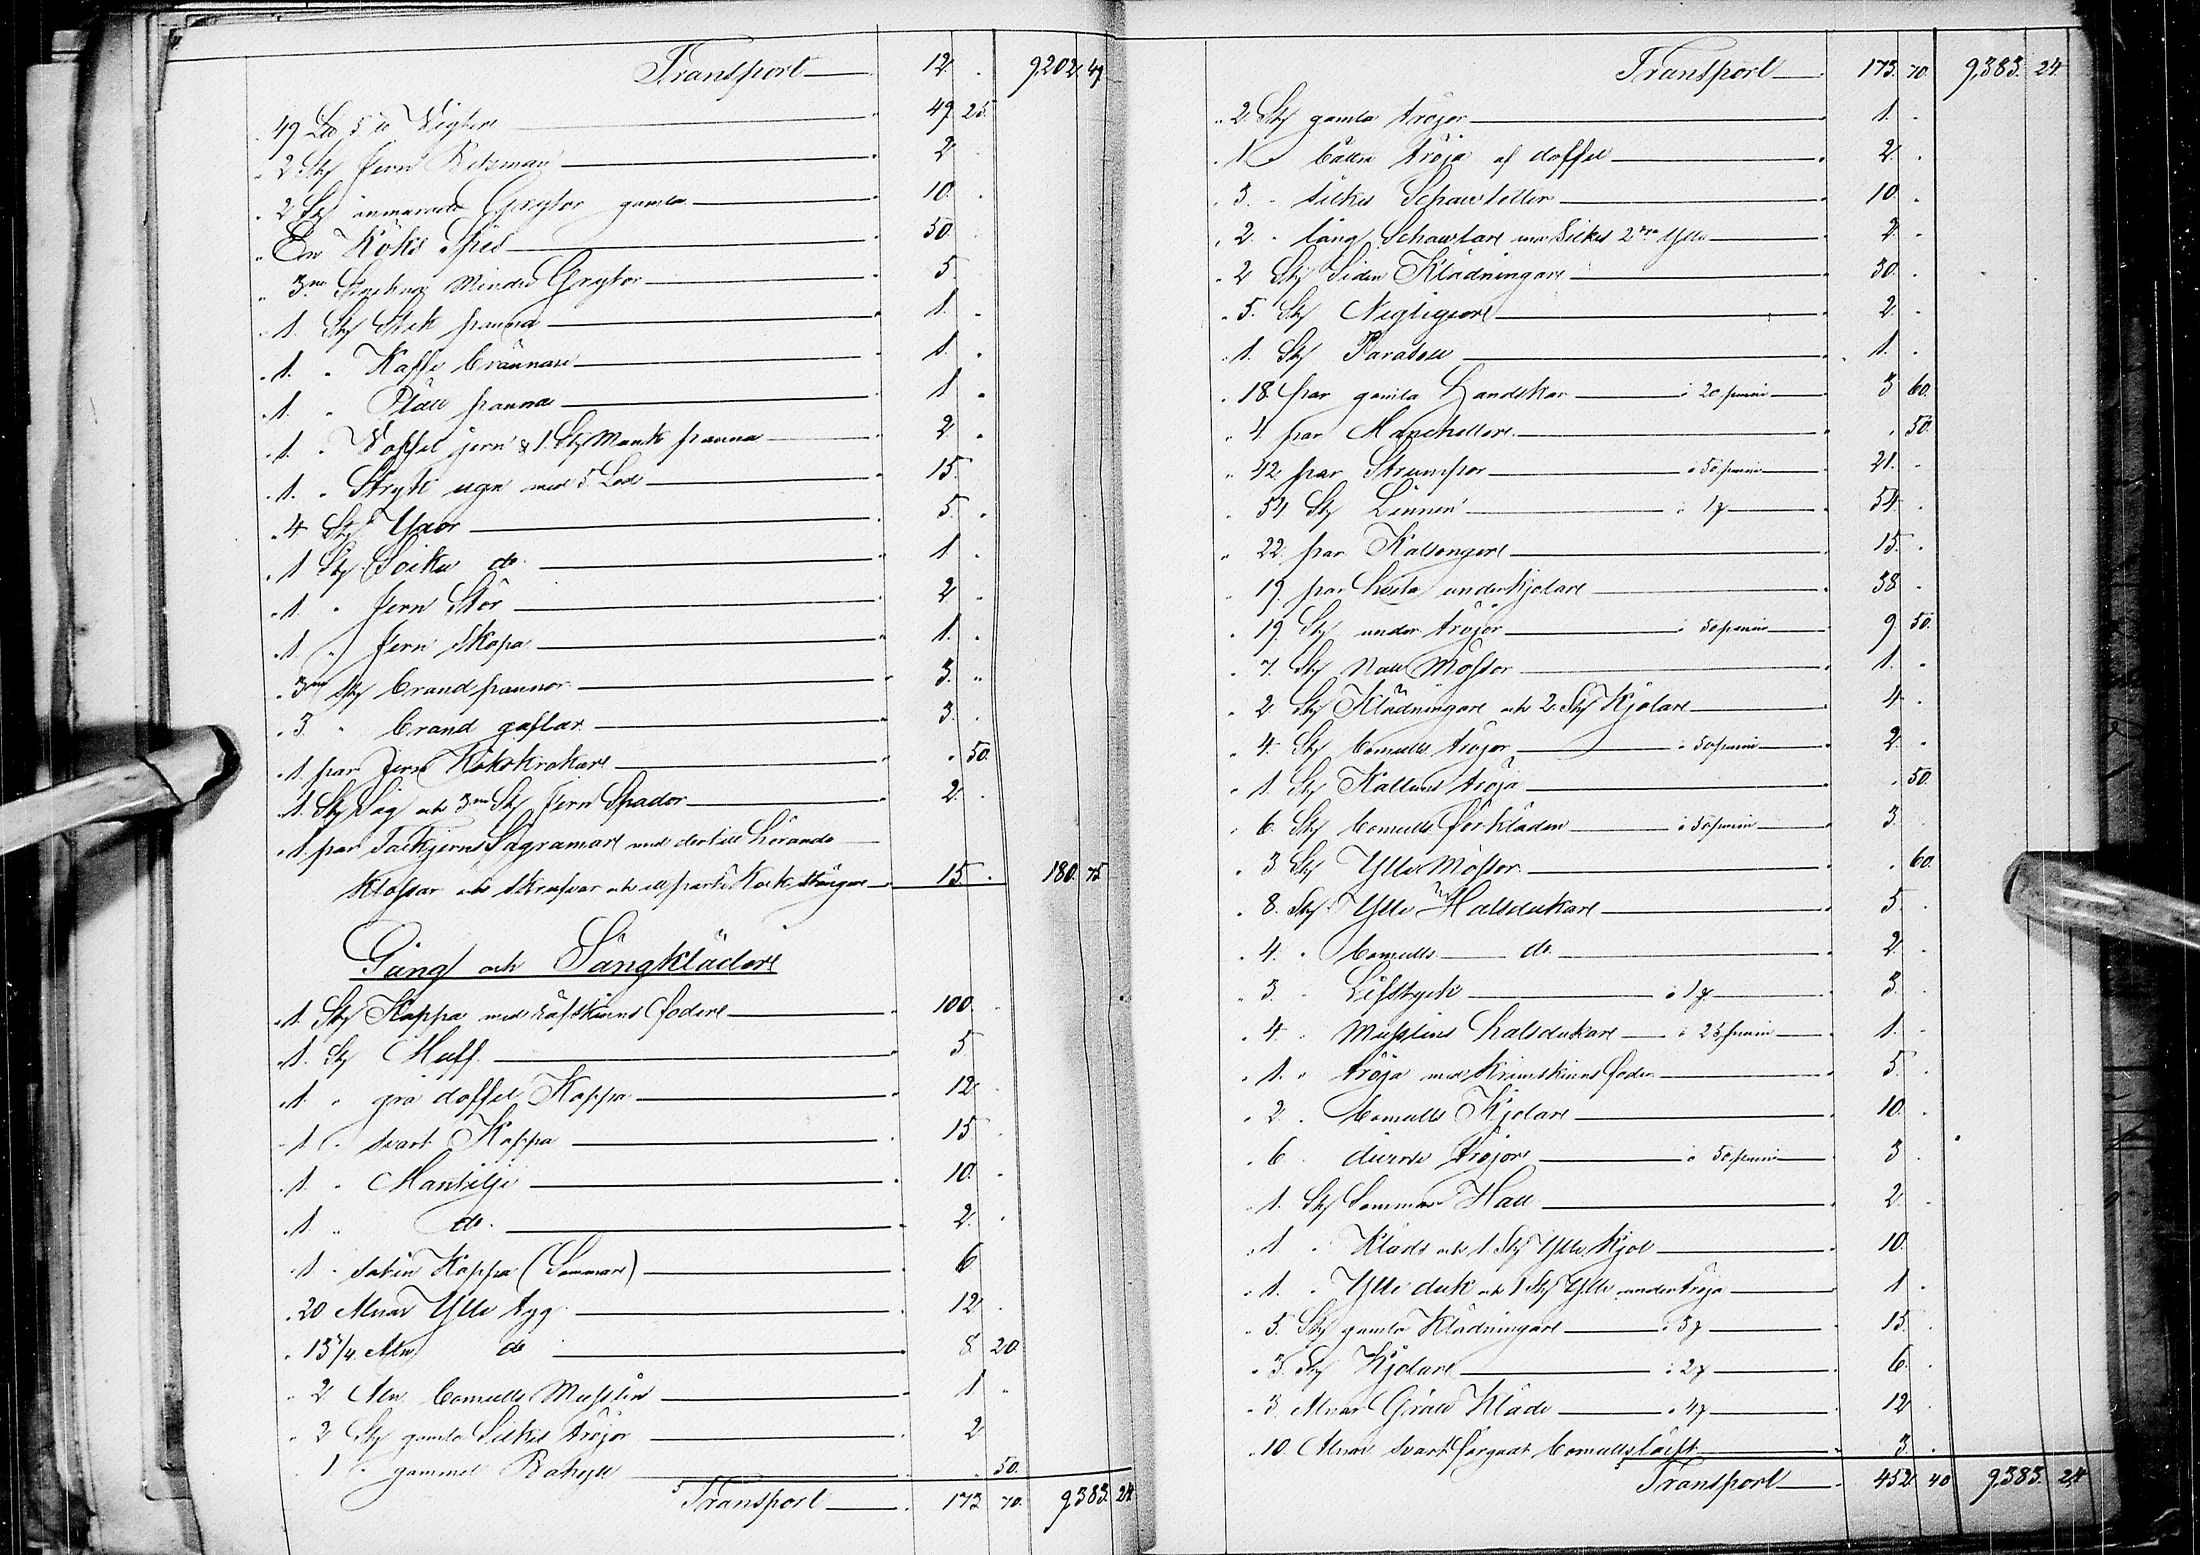 Transport 12 . 9,202 49
49 LB 5 lb Vigter 49 25
2 Stÿ Jern Betsman 2 .
2 Stÿ inmurade Grytor gamla 10 .
En Köks Spis 50 .
3ne Smehna Mindre Grytor 5 .
1. Stÿ Stek panna 1 .
1. " Kaffe brännare 1 .
1 " Plätt panna 1 .
1. " Voffel jern & 1. Stÿ Munk panna 2 .
1. " Stryk ugn med 5 Lod 15 .
4 Stÿ Yxor 5 .
1 Stÿ do 1 .
1. " Jern Stör 2 .
1 " Jern Skopa 1 .
3ne Stÿ brandpannor 3 "
3 " brand gaflar 3 .
1 par Jern Kakskrokare " 50
1. Stÿ Såg och 3ne Stÿ Jern Spador 2 .
1. par Tackjerns Sågramare med dertill hörande
Klossar och skrufvar och ett parti stängare 15 . 180 75
Gång och Sängkläder
1. Stÿ Kappa med Räfskinns foder 100 .
1. Stÿ Muff 5
1. " grå doffel Kappa 12
1 " svart Kappa 15 .
1. " Mantilje 10 .
1 " do 2 .
1 " Satin Kappa (Sommar) 6
20 Alnar Ylle tyg 12 .
13 3/4 Aln do 8 20
2 Aln bomulls Musslin 1 "
2 Stÿ gamla Silkes tröjor 2
1 " gammel " 50
Transport 173 70 9383 24
Transport 173 70 9,383 24
2 Stÿ gamla tröjor 1 .
1 " bättre tröja af doffel 2 .
3 " silkes Schawletter 10 .
2 " lång Schawlare en Silkes 2dra Ylle 2 .
2 Stÿ Siden Klädningare 30 .
5 Stÿ Negligeere 2 .
1. Stÿ Parasoll 1 .
18 par gamla Handskar á 20 penni 3 60
4 par Manchetter " 50
42 par Strumpor á 50 penni 21 .
54 Stÿ Linnen á 1 54 .
22 par Kalsonger 15 .
19 par hvita underkjolare 38 .
19 Stÿ under tröjor á 50 penni 9 50
7. Stÿ Natt Mössor 1 .
2 Stÿ Klädningare och 2 Stÿ Kjolare 4 .
4. Stÿ bomulls tröjor á 50 penni 2 .
1 Stÿ Kattuns tröja . 50
6 Stÿ bomulls förkläden á 50 penni 3 .
3 Stÿ Ylle Mössor . 60
8. Stÿ Ylle Halsdukare 5 .
4. " bomulls do 2 .
3 " Lifstyck á 1 3 .
4 " Musslins halsdukare á 25 penni 1 .
1. " tröja med Krimskinns foder 5 .
2 " bomulls Kjolare 10 .
6 " diverse tröjor á 50 penni 3 .
1. Stÿ Sommar Hatt 2 .
1 " Kläds och 1 Stÿ Ylle Kjol 10
1. " Ylle duk och 1 Stÿ Ylle undertröja 1 .
5. Stÿ gamla Klädningare á 3 15 .
3. Stÿ Kjolare á 2 6 .
3 Alnar Grått Kläde á 4 12 .
10 Alnar svart färgadt bomullslärft 3 .
Transport 452 40 9,383 24